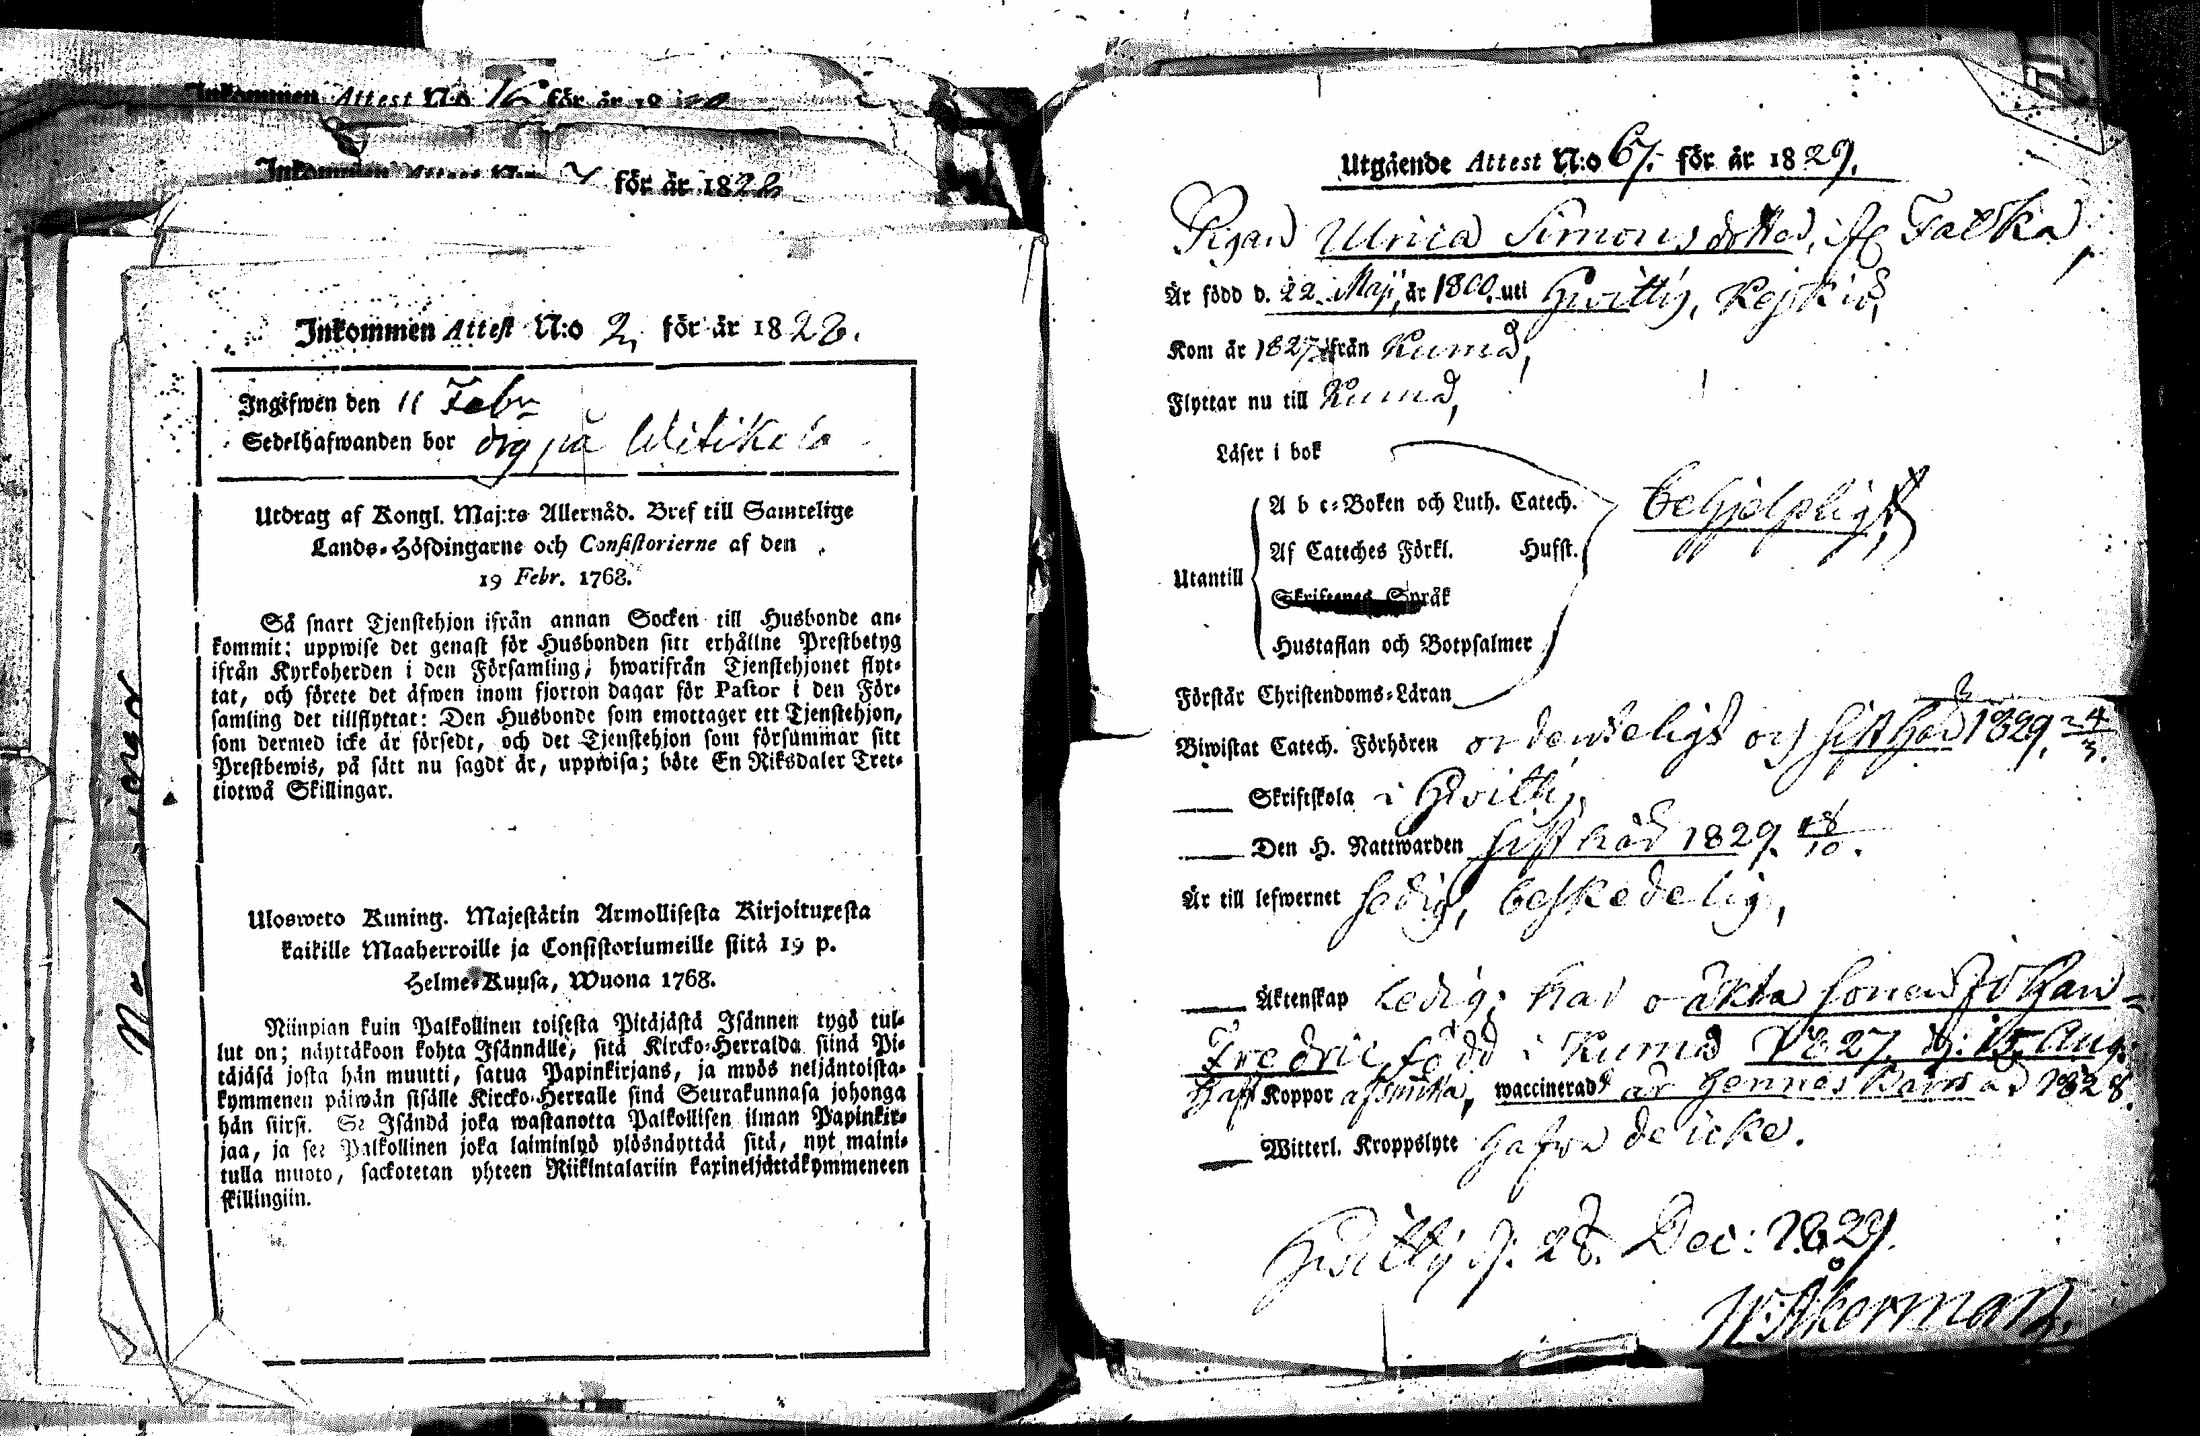 Inkommen Attest N:o 76 för år 18
Inkommen Attest N:o 7 för år 1828
Inkommen Attest N:o 2, för år 1828.
Ingifwen den 11 Febr
Sedelhafwanden bor sig på Witikala
Utdrag af Kongl. Maj:ts Allernåd. Bref till Samtelige
Lands-Höfdingarne och Consistorierne af den
19 Febr. 1768.
Så snart Tjenstehjon ifrån annan Socken till Husbonde an-
kommit; uppwise det genast för Husbonden sitt erhållne Prestbetyg
ifrån Kyrkoherden i den Församling, hwarifrån Tjenstehjonet flyt-
tat, och förete det äfwen inom fjorton dagar för Pastor i den För-
samling det tillflyttat: Den Husbonde som emottager ett Tjenstehjon,
som dermed icke är försedt, och det Tjenstehjon som försummar sitt
Prestbewis, på sätt nu sagdt är, uppwisa; böte En Riksdaler Tret-
tiotwå Skillingar.
Ulosweto Kuning. Majestätin Armollisesta Kirjoituxesta
kaikille Maaherroille ja Consistoriumeille siitä 19 p.
Helme-Kuusa, Wuona 1768.
Niinpian kuin Palkollinen toisesta Pitäjästä Isännen tygö tul-
lut on; näyttäkoon kohta Isännälle, sitä Kircko-Herralda siinä Pi-
täjäsä josta hän muutti, satua Papinkirjans, ja myös neljäntoista-
kymmenen päiwän sisälle Kircko-Herralle sinä Seurakunnasa johonga
hän siirsi. Se Isändä joka wastanotta Palkollisen ilman Papinkir-
jaa, ja se Palkollinen joka laiminlyö ylösnäyttää sitä, nyt maini-
tulla muoto, sackotetan yhteen Riikintalariin kaxineljättäkymmeneen
skillingiin.
Utgående Attest N:o 67. för år 1829.
Pigan Ulrica Simonsdotter, ifr Falcka,
Är född d. 22. Maji, år 1800. uti Hwittis, Kejkiö,
Kom år 1827 ifrån Kumå,
Flyttar nu till Kumå,
Läser i bok
A b c-Boken och Luth. Catech. behjelpligt,
Af Cateches Förkl. Husst.
Utantill
Skriftenes Språk
Hustaflan och Botpsalmer
Förstår Christendoms-Läran
Biwistat Catech. Förhören ordenteligt och sisthåd 1829. 24/3.
Skriftskola i Hwittis,
Den H. Nattwarden sisthåd 1829. 18/10.
Är till lefwernet sedig, beskedelig,
Äktenskap Ledig; har o-äkta sonen Johan-
Fredric, född i Kumå 1827. d: 15. Aug:
Haft Koppor af Smitta, waccinerad är hennes Barn år 1828.
Witterl. Kroppslyte hafwa de icke.
Hwittis d: 28. Dec: 1829.
W. Åkerman.